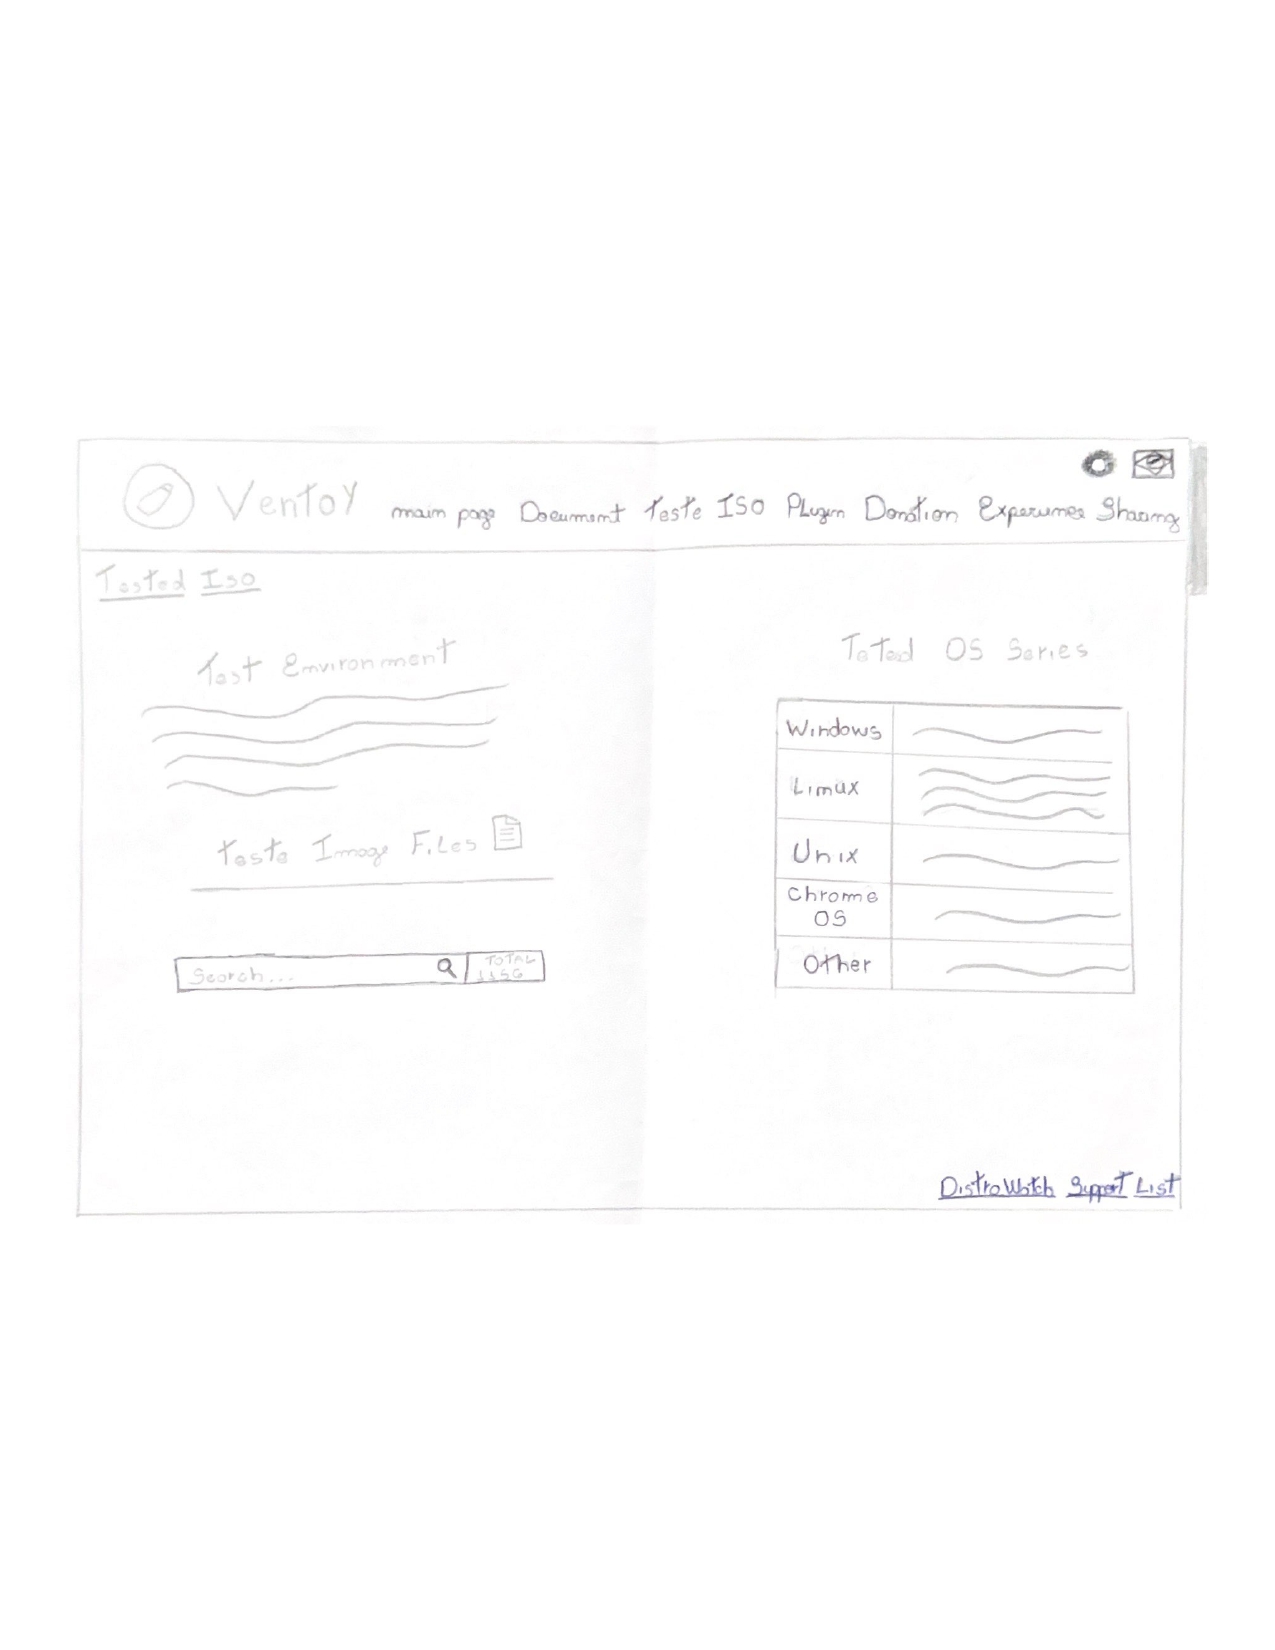 Ventoy main page Document Teste ISO Plugin Donation Experience Sharing
Tested Iso
Test Environment
Teste Image Files
Search...
TOTAL
1156
Teted OS Series
Windows
Linux
Unix
Chrome
OS
Other
DistroWatch Support List